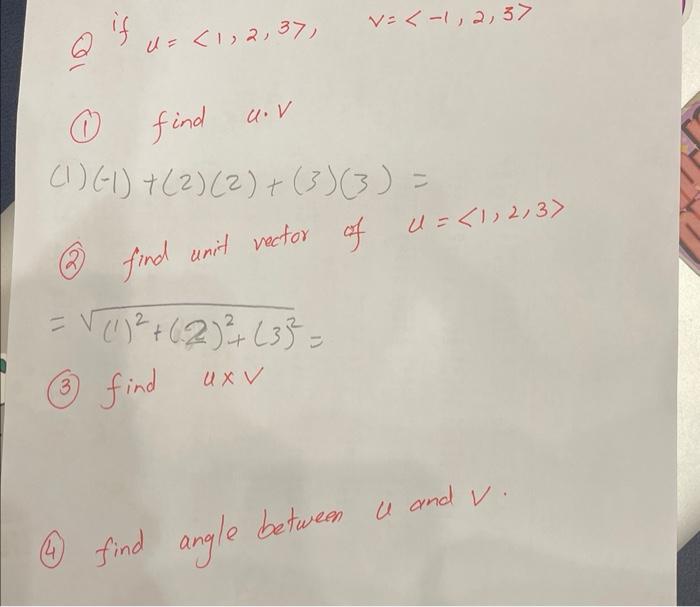 Q if u = <1, 2, 3>, v = <-1, 2, 3>
① find u·v
(1)(-1) + (2)(2) + (3)(3) =
② find unit vector of u = <1, 2, 3>
= √(1)² + (2)² + (3)² =
③ find u x v
④ find angle between u and v.